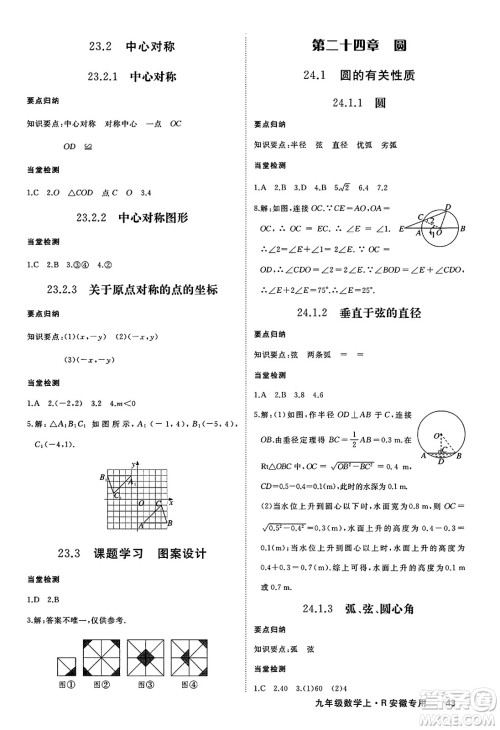 23.2 中心对称
23.2.1 中心对称
要点归纳
知识要点：中心对称 对称中心 一点 OC
OD ≌
当堂检测
1.C 2.△COD 点O 点C 3.4
23.2.2 中心对称图形
当堂检测
1.A 2.B 3.③④ 4.②
23.2.3 关于原点对称的点的坐标
要点归纳
知识要点：(1)(x，-y) (2)(-x，y)
(3)(-x，-y)
当堂检测
1.A 2.(-2,2) 3.2 4.m<0
5.解：△A₁B₁C₁ 如图所示，A₁(-1,4)，B₁(-5,4)，
C₁(-4,1).
23.3 课题学习 图案设计
当堂检测
1.D 2.B
3.解：答案不唯一，仅供参考.
第二十四章 圆
24.1 圆的有关性质
24.1.1 圆
要点归纳
知识要点：半径 弦 直径 优弧 劣弧
当堂检测
1.A 2.B 3.A 4.B 5.√2 6.4 7.2
8.解：如图，连接 OC. ∵CE=AO，OA=
OC，∴OC=EC. ∴∠E=∠1.
∴∠2=∠E+∠1=2∠E. ∵OC=
OD，∴∠D=∠2=2∠E. ∵∠BOD=
∠E+∠D，∴∠E+2∠E=75°. ∴∠E=25°.
24.1.2 垂直于弦的直径
要点归纳
知识要点：弦 两条弧 = =
当堂检测
1.A 2.B 3.8 4.6
5.解：(1)如图，作半径 OD⊥AB 于 C，连接
OB. 由垂径定理得 BC=1/2 AB=0.3 m. 在
Rt△OBC 中，OC=√(OB²-BC²)=0.4 m.
CD=0.5-0.4=0.1(m). 此时的水深为 0.1 m.
(2)当水位上升到圆心以下时，水面宽 0.8 m 时，OC=
√(0.5²-0.4²)=0.3(m)，水面上升的高度为 0.4-
0.3=0.1(m). 当水位上升到圆心以上时，水面上升的
高度为 0.4+0.3=0.7(m). 综上可得，水面上升的高度
为 0.1 m 或 0.7 m.
24.1.3 弧、弦、圆心角
要点归纳
知识要点：弧 弦
当堂检测
1.C 2.40 3.120 4.60 5.(1)= (2)=
九年级数学上·R 安徽专用 43